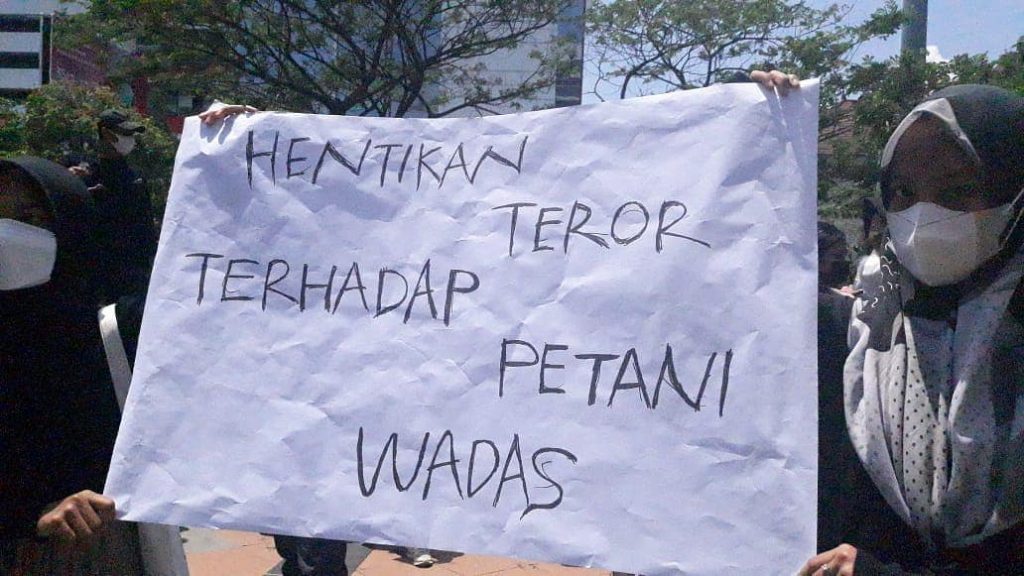 HENTIKAN
TEROR
TERHADAP
PETANI
WADAS